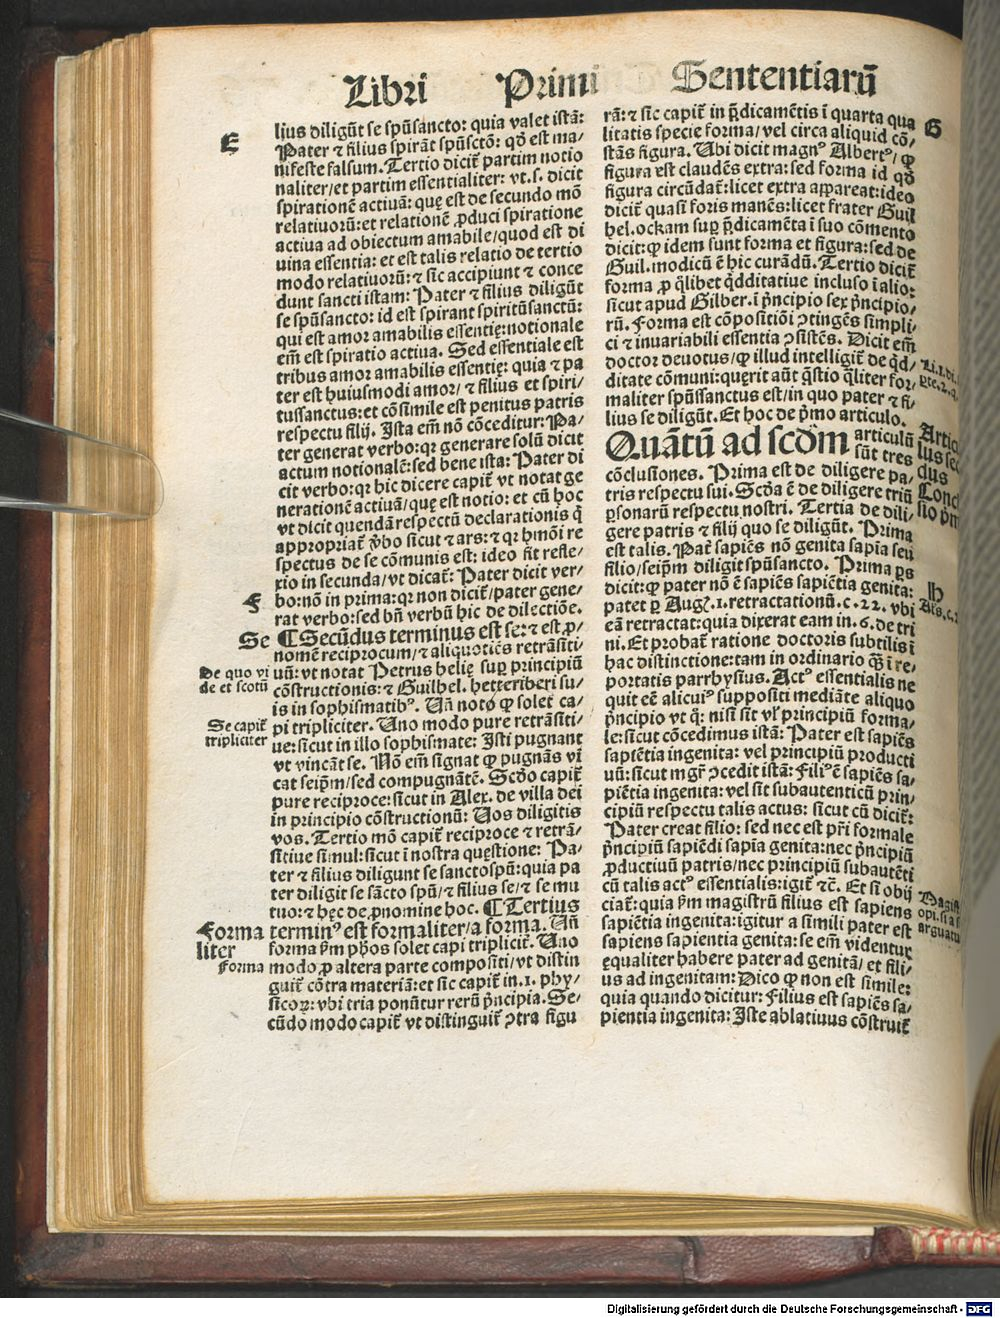 Libri Primi Sententiarū
E
lius diligūt se spūsancto: quia valet istā:
Pater ⁊ filius spirāt spūsctō: qđ est ma-
nifeste falsum. Tertio dicit̄ partim notio
naliter/et partim essentialiter: vt. s. dicit
spirationē actiuā: quę est de secundo mō
relatiuorū: et relationē ꝓduci spiratione
actiua ad obiectum amabile/quod est di
uina essentia: et est talis relatio de tertio
modo relatiuorū: ⁊ sic accipiunt ⁊ conce
dunt sancti istam: Pater ⁊ filius diligūt
se spūsancto: id est spirant spiritūsanctū:
qui est amor amabilis essentię: notionale
em̄ est spiratio actiua. Sed essentiale est
tribus amor amabilis essentię: quia ⁊ pa
ter est huiusmodi amor/ ⁊ filius et spiri-
tussanctus: et cōsimile est penitus patris
respectu filij. Ista em̄ nō cōceditur: Pa-
ter generat verbo: qꝛ generare solū dicit
actum notionalē: sed bene ista: Pater di
cit verbo: qꝛ hic dicere capit̄ vt notat ge
nerationē actiuā/quę est notio: et cū hoc
vt dicit quendā respectū declarationis q̄
appropriat̄ v̄bo sicut ⁊ ars: ⁊ qꝛ hmōi re
spectus de se cōmunis est: ideo fit refle-
xio in secunda/vt dicat̄: Pater dicit ver-
F
bo: nō in prima: qꝛ non dicit̄/pater gene-
rat verbo: sed bn̄ verbū hic de dilectiōe.
Se
¶ Secūdus terminus est se: ⁊ est ꝓ-
nomē reciprocum/⁊ aliquotiēs retrāsiti-
De quo vi
de et scotū
uū: vt notat Petrus helię suꝑ principiū
cōstructionis: ⁊ Guilhel. hetzeriberi su-
is in sophismatibꝰ. Un̄ noto ꝙ solet ca-
Se capit̄
tripliciter
pi tripliciter. Uno modo pure retrāsiti-
ue: sicut in illo sophismate: Isti pugnant
vt vincāt se. Nō em̄ signat ꝙ pugnās vī
cat seip̄m/sed compugnātē. Scd̄o capit̄
pure reciproce: sicut in Alex. de villa dei
in principio cōstructionū: Uos diligitis
vos. Tertio mō capit̄ reciproce ⁊ retrā-
sitiue simul: sicut ī nostra quęstione: Pa-
ter ⁊ filius diligunt se sanctospū: quia pa
ter diligit se sācto spū/⁊ filius se/⁊ se mu
tuo: ⁊ hęc de ꝓnomine hoc. ¶ Tertius
Forma
liter
terminꝰ est formaliter/a forma. Un̄
forma ṽm ph̄os solet capi triplicit̄. Uno
Forma
modo ꝓ altera parte compositi/vt distin
guit̄ cōtra materiā: et sic capit̄ in. 1. phy-
sicoꝝ: vbi tria ponūtur rerū pn̄cipia. Se-
cūdo modo capit̄ vt distinguit̄ ↄtra figu
G
rā: ⁊ sic capit̄ in p̄dicamētis ī quarta qua
litatis specie forma/vel circa aliquid cō-
stās figura. Ubi dicit magnꝰ Albertꝰ/ ꝙ
figura est claudēs extra: sed forma id qđ
figura circūdat̄: licet extra appareat: ideo
dicit̄ quasi foris manēs: licet frater Guil
hel. ockam suꝑ p̄dicamēta ī suo cōmento
dicit: ꝙ idem sunt forma et figura: sed de
Guil. modicū ē hic curādū. Tertio dicit̄
forma ꝓ q̄libet q̄dditatiue incluso ī alio:
sicut apud Gilber. ī pn̄cipio sex pn̄cipio-
rū. Forma est cōpositiōi ↄtingēs simpli-
ci ⁊ inuariabili essentia ↄsistēs. Dicit em̄
doctor deuotus/ꝙ illud intelligit̄ de q̄d-
ditate cōmuni: quęrit aūt q̄stio q̄liter for-
maliter spūssanctus est/in quo pater ⁊ fi-
lius se diligūt. Et hoc de p̄mo articulo.
Quātū ad scđm articulū
sūt tres
cōclusiones. Prima est de diligere pa-
tris respectu sui. Scd̄a ē de diligere triū
ꝑsonarū respectu nostri. Tertia de dili-
gere patris ⁊ filij quo se diligūt. Prima
est talis. Pat̄ sapiēs nō genita sapīa seu
filio/seip̄m diligit spūsancto. Prima ꝑs
dicit: ꝙ pater nō ē sapiēs sapiētia genita:
patet ꝑ Aug. 1. retractationū. c. 22. vbi
eā retractat: quia dixerat eam in. 6. de tri
ni. Et probat̄ ratione doctoris subtilis ī
hac distinctione: tam in ordinario qꝫ̄ ī re-
portatis parrhysius. Actꝰ essentialis ne
quit eē alicuiꝰ suppositi mediāte aliquo
pn̄cipio vt q̄: nisi sit vl̓ principiū forma-
le: sicut cōcedimus istā: Pater est sapiēs
sapiētia ingenita: vel principiū producti
uū: sicut mgr̄ ↄcedit istā: Filiꝰ ē sapiēs sa-
piētia ingenita: vel sit subautenticū prin-
cipiū respectu talis actus: sicut cū dicit̄:
Pater creat filio: sed nec est pr̄i formale
pn̄cipiū sapiēdi sapīa genita: nec pn̄cipiū
ꝓductiuū patris/nec principiū subautēti
cū talis actꝰ essentialis: igit̄ ⁊c̄. Et si obij
ciat̄: quia ṽm magistrū filius est sapiens
sapiētia ingenita: igitur a simili pater est
sapiens sapientia genita: se em̄ videntur
equaliter habere pater ad genitā/ et fili-
us ad ingenitam: Dico ꝙ non est simile:
quia quando dicitur: Filius est sapiēs sa-
pientia ingenita: Iste ablatiuus cōstruit̄
Li. 1. di.
Artic
lus sec
dus
Concl
sio p̄m
H
Magist
opi. si a s
arguatu
Digitalisierung gefördert durch die Deutsche Forschungsgemeinschaft - DFG